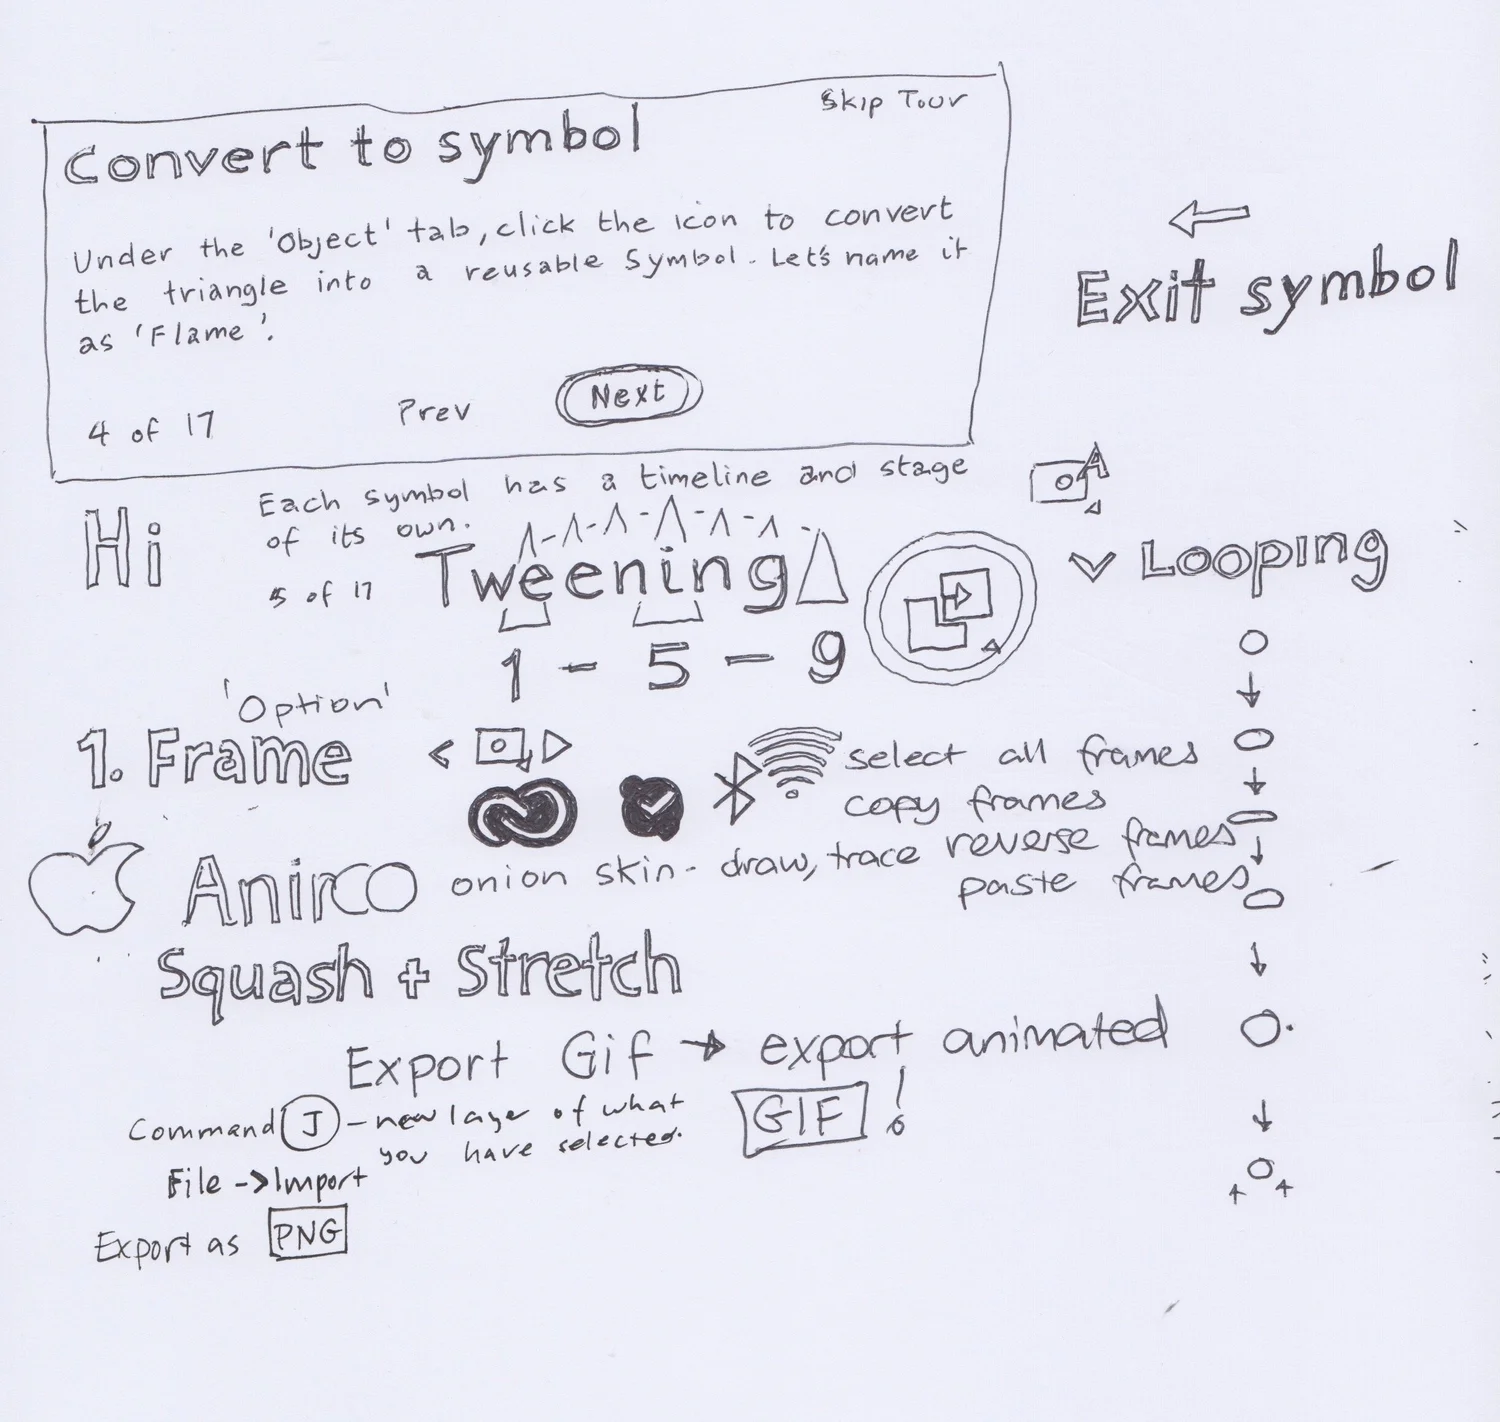 Skip Tour
Convert to symbol
Under the 'Object' tab, click the icon to convert
the triangle into a reusable symbol. Let's name it
as 'Flame'.
4 of 17
Prev
Next
Exit symbol
Hi
Each symbol has a timeline and stage
of its own.
5 of 17
Tweening
1 - 5 - 9
A
Looping
'Option'
1. Frame
select all frames
copy frames
reverse frames
paste frames
Anirco
onion skin - draw, trace
Squash + Stretch
Export Gif → export animated
GIF!
Command J - new layer of what
you have selected.
File -> Import
Export as PNG